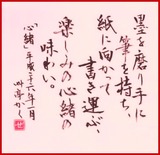 墨を磨り手に
筆を持ち、
紙に向かて
書き運ぶ、
楽しみの心緒の
味わい。
「心緒」平成二十六年一月